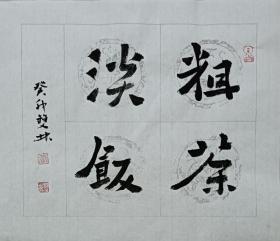 粗茶
淡飯
癸卯雙林